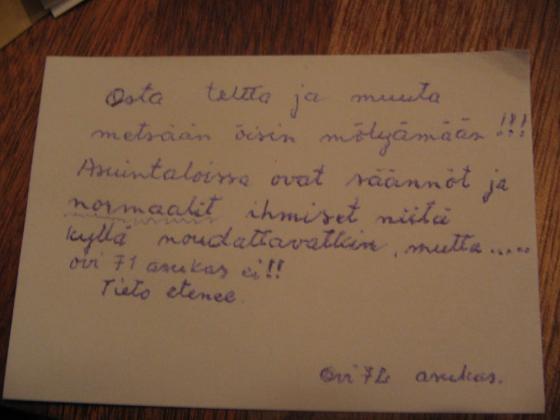 Osta teltta ja muuta
metsään öisin mölyämään !!!
Asuintaloissa ovat säännöt ja
normaalit ihmiset niitä
kyllä noudattavatkin, mutta.....
ovi 71 asukas ei!!
Tieto etenee.
Ovi 72 asukas.